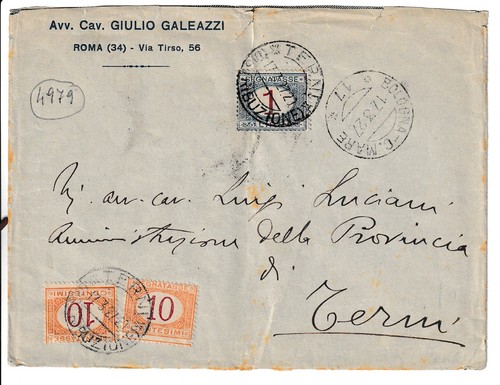 Avv. Cav. GIULIO GALEAZZI
ROMA (34) - Via Tirso, 56
4979
TERNI
DISTRIBUZIONE
SEGNATASSE
1
BOLOGNA-C. MARE
17.3.27
17
Ill. avv. cav. Luigi Luciani
Amministrazione della Provincia
di
Terni
TERNI
SEGNATASSE
10
CENTESIMI
SEGNATASSE
10
CENTESIMI